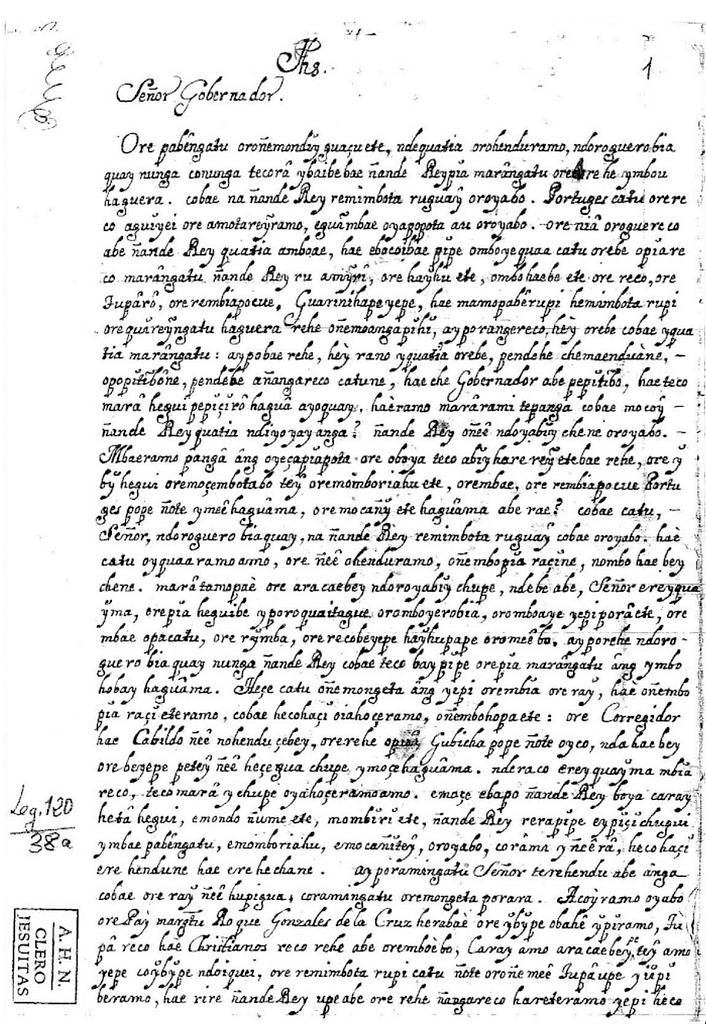 Jhs.
1
Señor Gobernador.
Ore pabêngatu oroñemondỹi guaçu ete, ndequatia orohenduramo, ndoroguerobia
quay nunga conunga tecorâ ybaibebae ñande Rey pĭa marângatu ore rehe ymbou
haguera. cobae na ñande Rey remimbota ruguaỹ oroyabo. Portugues catu orere
co aguĭyei ore amotareỹramo, eguĭmbae oyapopota au oroyabo. ore niâ oroguereco
abe ñande Rey quatia amboae, hae ebocoĭbae pĭpe omboyequaa catu orebe opĭare
co marângatu ñande Rey ru amỹrĭ, ore haỹhu ete, ombohaebe ete ore reco, ore
Tuparô, ore rembiapocue, Guarinihapeyepe, hae mamopabêrupi hemimbota rupi
ore quareỹngatu haguera rehe oñemoangapĭhĭ, ayporangereco, heỹ orebe cobae yqua
tia marângatu: aypobae rehe, hèy ramo yquatĭa orebe, pendehe chemaenduàne, -
opopĭtĭbône, pendebe añangareco catune, hae che Gobernador abe pepĭtĭbo, hae teco
marâ hegui pepĭçĭrô haguâ ayoquay. haèramo marârami tepanga cobae mocoỹ -
ñande Rey quatia ndiyoyay anga? ñande Rey oñeê ndoyabỹi chene oroyabo. -
Mbaeramo pânga âng oyeçapĭapota ore oboya teco abỹhare reỹ etebae rehe, ore ỹ
bỹ hegui oremoçembotabo teỹ oremomboriahu ete, orembae, ore rembiapocue Portu
ges pope ñote ymeê haguâma, ore mocañỹ ete haguâma abe rae? cobae catu, -
Señor, ndoroguerobiaquay, na ñande Rèy remimbota ruguaỹ cobae oroyabo. haè
catu oyquaaramoamo, ore ñeê ohenduramo, oñembopĭa raçĭne, nombohaebey
chene. marâtamopaè ore aracaebey ndoroyabiỹ chupe, ndebe abe, Señor ereyqua
ỹma, orepĭa heguibe yporoquaitague oromboyerobia, oromboaye yepi porâ ete, ore
mbae opacatu, ore rỹmba, ore recobeyepe haỹhupape oromeêbo. ayporehe ndoro-
guerobiaquay nunga ñande Rey cobae teco bay pĭpe orepĭa marângatu âng ymbo
hobay haguâma. Aeçe catu oñemongeta âng yepi orembĭa ore raỹ, hae oñembo
pĭa raçĭ eteramo, cobae hecohaçĭ oiahoçeramo, oñembohopa ete: ore Corregidor
hae Cabildo ñeê nohenduçebey, orerehe opĭaĭ Gubicha pope ñote oyco, nda haebey
ore beyepe peteỹ ñeê heçegua chupe ymoçe haguâma. nderaco ereyquayma mbĭa
reco, teco marâ ychupe oyahoçeramoamo. emaçe ebapo ñande Rey boya caray
hetâ hegui, emondo ñume ete, mombĭrĭ ete, ñande Rey rerapĭpe eypĭçĭ chugui
ymbae pabêngatu, emomboriahu, emocañĭteỹ, oroyabo, corâma yñeêrâ, hecohaçĭ
ere hendune hae erehechane. ayporamingatu Señor terehendu abe ânga
cobae ore raỹ ñeê hupigua, coramingatu oremongeta porara. Acoỹramo oyabo
ore Paỳ margtu Roque Gonzales de la Cruz herabaè ore ỹbỹpe obahê ypĭramo, Tu
pâ reco hae Christianos reco rehe abe oremboebo, Caray amo aracaebeỹ, teỹ amo
yepe coỹbỹpe ndoiquei, ore remimbota rupi catu ñote oroñemeê Tupâupe yĭupi
beramo, hae rire ñande Rey upe abe ore rehe ñangareco hareteramo yepi heco
Leg. 120
38a
A. H. N.
CLERO
JESUITAS